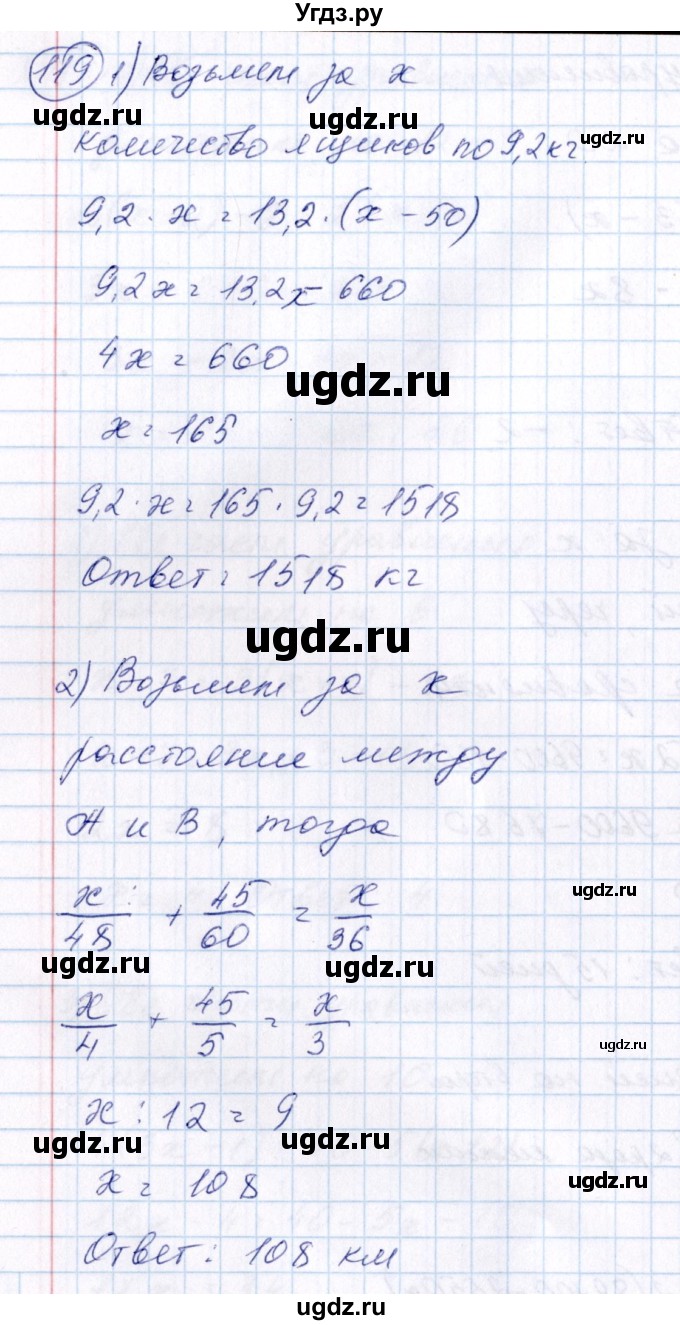 Угдз.ру
119 1) Возьмем за x
ugdz.ru ugdz.ru
количество ящиков по 9,2 кг
ugdz.ru
9,2 · x = 13,2 · (x - 50)
9,2x = 13,2x - 660
4x = 660
ugdz.ru
x = 165
9,2 · x = 165 · 9,2 = 1518
Ответ: 1518 кг
ugdz.ru
2) Возьмем за x
расстояние между
A и B, тогда
x/48 + 45/60 = x/36
ugdz.ru
ugdz.ru ugdz.ru
x/4 + 45/5 = x/3
ugdz.ru
x : 12 = 9
ugdz.ru ugdz.ru
x = 108
ugdz.ru
Ответ: 108 км
ugdz.ru